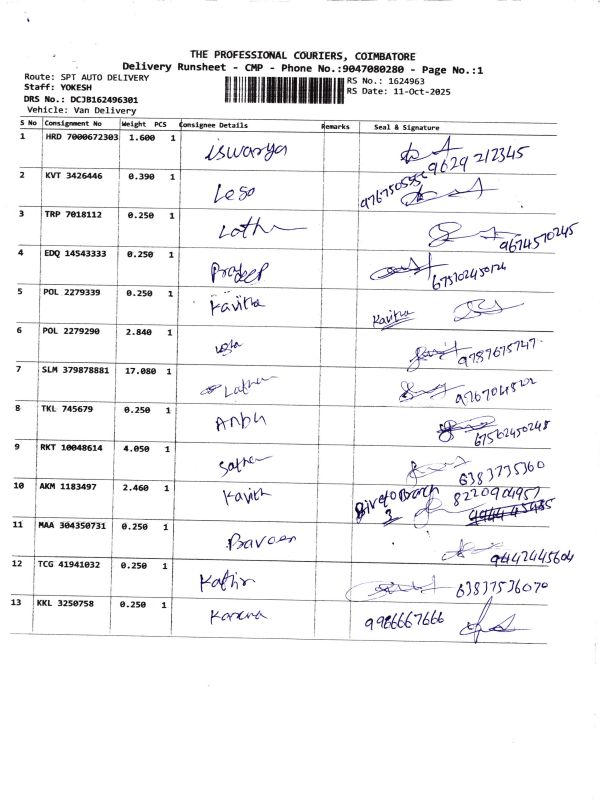 THE PROFESSIONAL COURIERS, COIMBATORE
Delivery Runsheet - CMP - Phone No.:9047080280 - Page No.:1
Route: SPT AUTO DELIVERY
RS No.: 1624963
Staff: YOKESH
RS Date: 11-Oct-2025
DRS No.: DCJB162496301
Vehicle: Van Delivery
S No Consignment No Weight PCS Consignee Details Remarks Seal & Signature
1 HRD 7000672303 1.600 1 iswarya 9629212345
2 KVT 3426446 0.390 1
3 TRP 7018112 0.250 1 9674570245
4 EDQ 14543333 0.250 1 Pradeep
5 POL 2279339 0.250 1 Kavitha Kavitha
6 POL 2279290 2.840 1 9787675747
7 SLM 379878881 17.080 1
8 TKL 745679 0.250 1 Anbu
9 RKT 10048614 4.050 1 6383735360
10 AKM 1183497 2.460 1 Kavith 8220904957
11 MAA 304350731 0.250 1 9442445604
12 TCG 41941032 0.250 1 Kathir 63837536070
13 KKL 3250758 0.250 1 9986667666